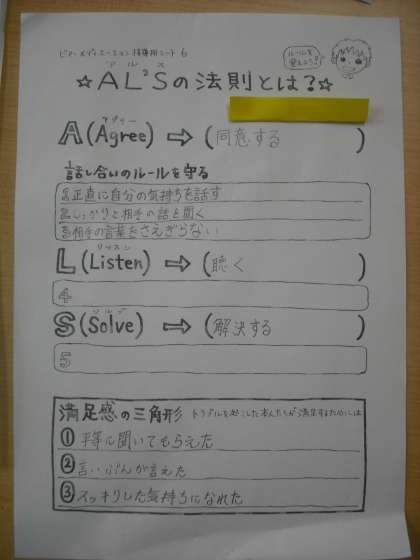 ピア・メディエーション 授業用シート 6
ルールを覚えよう!
アルス
☆AL'Sの法則とは?☆
アグリー
A(Agree) ⇨ (同意する)
話し合いのルールを守る
①正直に自分の気持ちを話す
②しっかりと相手の話を聞く
③相手の言葉をさえぎらない
リッスン
L(Listen) ⇨ (聴く)
4
ソルブ
S(Solve) ⇨ (解決する)
5
満足感の三角形 トラブルをおこした本人たちが満足するためには
①平等に聞いてもらえた
②言いぶんが言えた
③スッキリした気持ちになれた